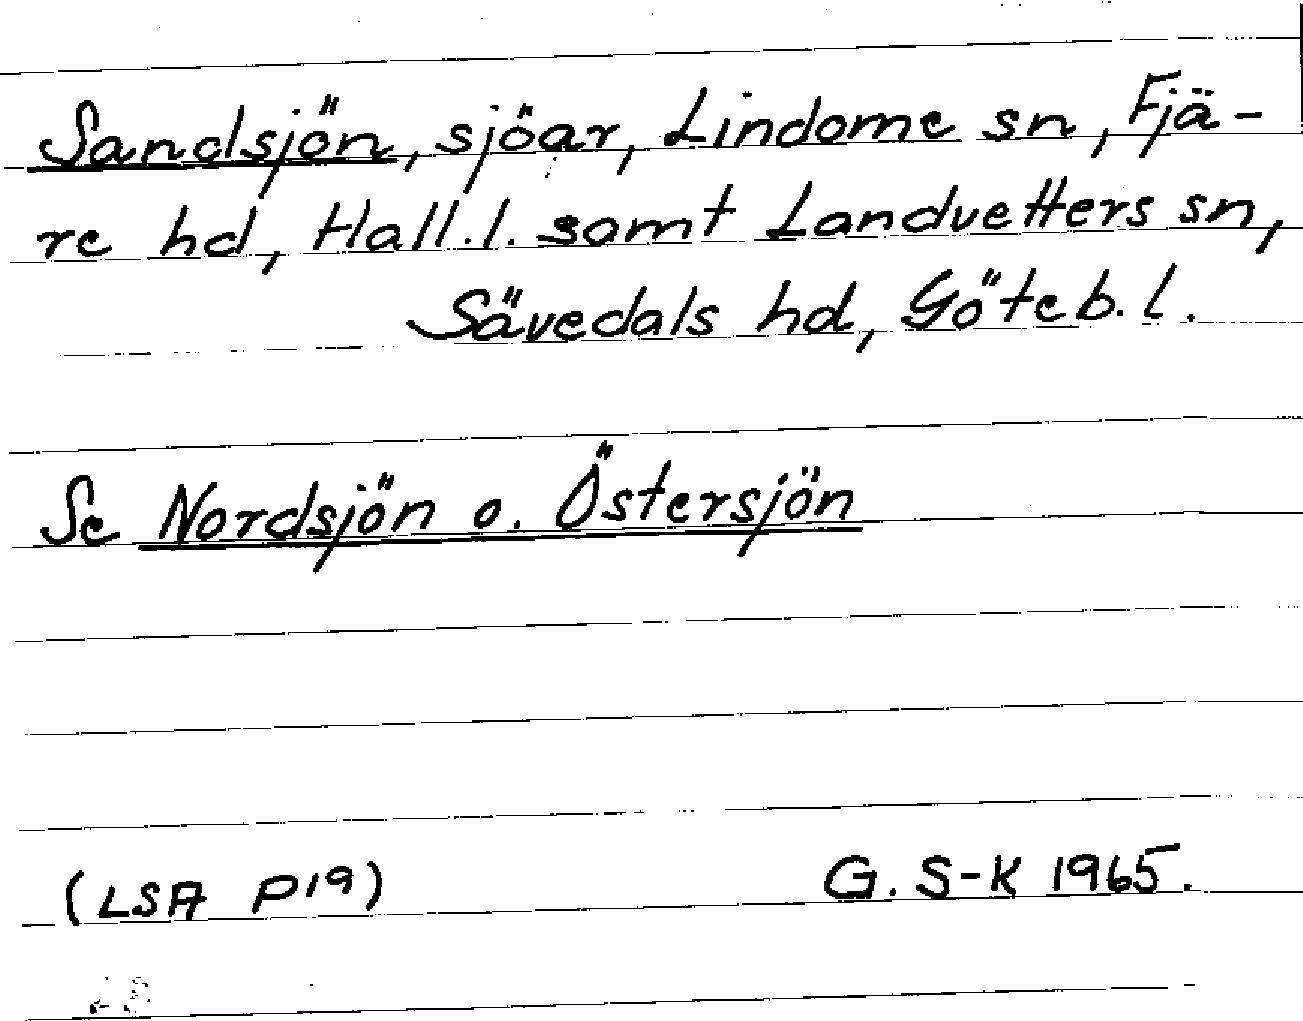 Sandsjön, sjöar, Lindome sn, Fjä-
re hd, Hall.l. samt Landvetters sn,
Sävedals hd, Göteb.l.
Se Nordsjön o. Östersjön
(LSA P19)
G.S-K 1965.